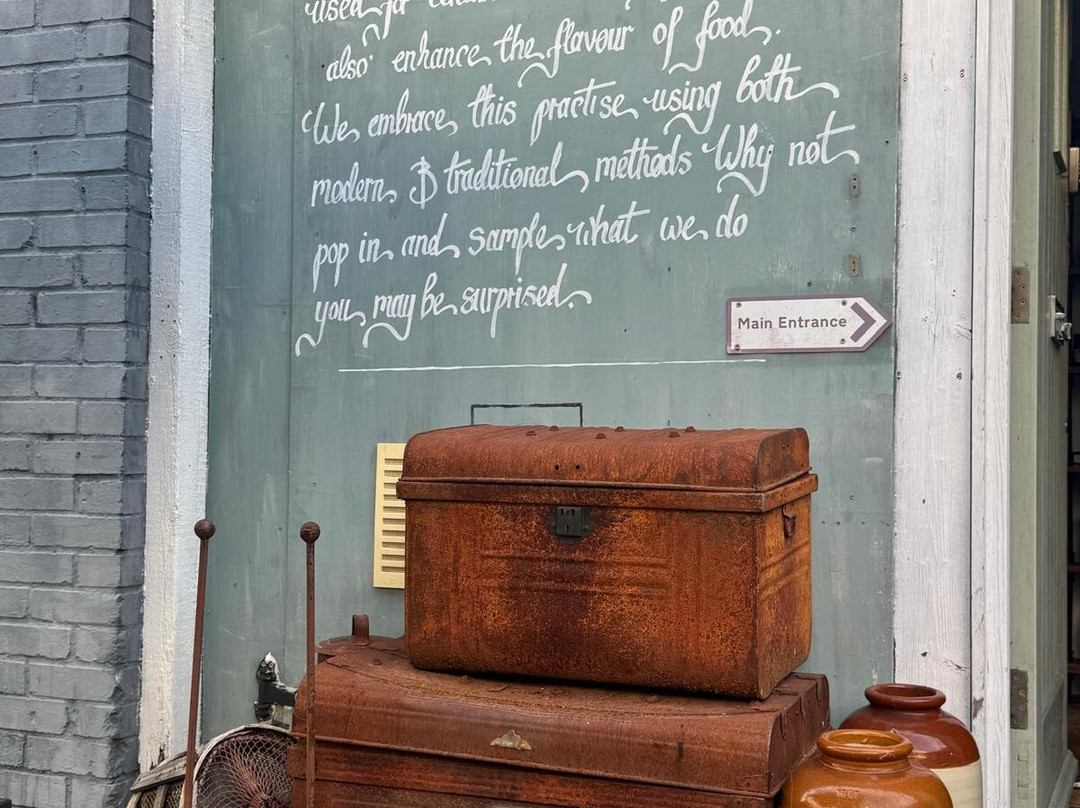 used for
also enhance the flavour of food.
We embrace this practise using both
modern & traditional methods Why not
pop in and sample what we do
you may be surprised.
Main Entrance